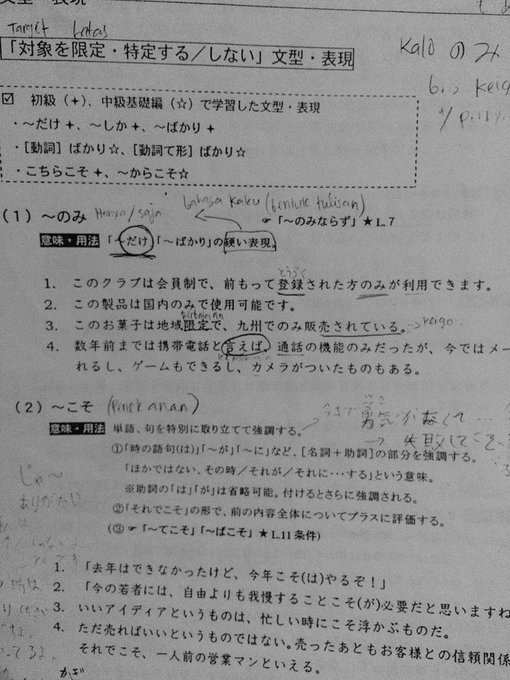 文型・表現
Target batas
「対象を限定・特定する／しない」文型・表現
Kalo のみ
☑ 初級（✦）、中級基礎編（☆）で学習した文型・表現
・〜だけ✦、〜しか✦、〜ばかり✦
・［動詞］ばかり☆、［動詞て形］ばかり☆
・こちらこそ✦、〜からこそ☆
（1）〜のみ Hanya/saja bahasa kaku (bentuk tulisan)
☞「〜のみならず」★L.7
意味・用法 「〜だけ」「〜ばかり」の硬い表現。
とうろく
1. このクラブは会員制で、前もって登録された方のみが利用できます。
2. この製品は国内のみで使用可能です。
3. このお菓子は地域限定で、九州でのみ販売されている。→keigo
4. 数年前までは携帯電話と言えば、通話の機能のみだったが、今ではメー
れるし、ゲームもできるし、カメラがついたものもある。
（2）〜こそ (Penekanan)
勇気がなくて
→ 失敗して
意味・用法 単語、句を特別に取り立てて強調する。
①「時の語句(は)」「〜が」「〜に」など、［名詞＋助詞］の部分を強調する。
「ほかではない、その時／それが／それに…する」という意味。
※助詞の「は」「が」は省略可能。付けるとさらに強調される。
②「それでこそ」の形で、前の内容全体についてプラスに評価する。
（③ ☞「〜てこそ」「〜ばこそ」★L.11 条件）
じゃ〜
ありがたい
1. 「去年はできなかったけど、今年こそ(は)やるぞ！」
2. 「今の若者には、自由よりも我慢することこそ(が)必要だと思いますね
3. いいアイディアというものは、忙しい時にこそ浮かぶものだ。
4. ただ売ればいいというものではない。売ったあともお客様との信頼関係
それでこそ、一人前の営業マンといえる。